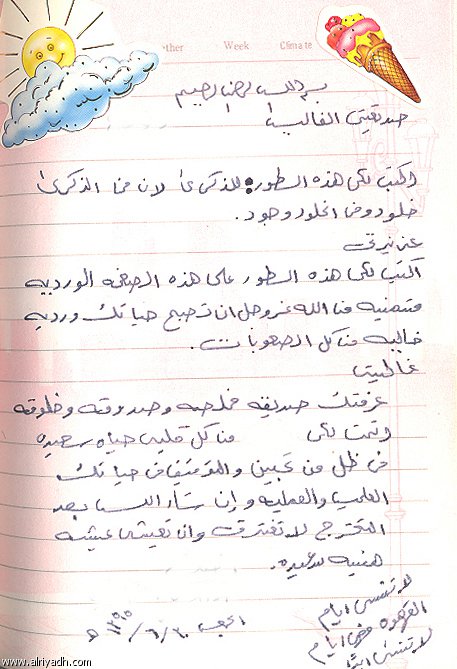 Week Climate
بسم الله الرحمن الرحيم
صديقتي الغالية
اكتب لكي هذه السطور للذكرى لان في الذكرى
خلود وفي الخلود وجود.
عزيزتي
اكتب لكي هذه السطور على هذه الصفحه الورديه
متمنيه من الله عز وجل ان تصبح حياتك ورديه
خاليه من كل الصعوبات.
غاليتي
عرفتك صديقه مخلصه وصدوقه وخلوقه
لكي من كل قلبي حياه سعيده
في ظل من تحبين والتوفيق في حياتك
العلميه والعمليه وإن شاء الله بعد
التخرج لا نفترق وان تعيشي عيشه
هنيه سعيده.
لا تنسي ايام
ايام
لا تنسي
www.alriyadh.com